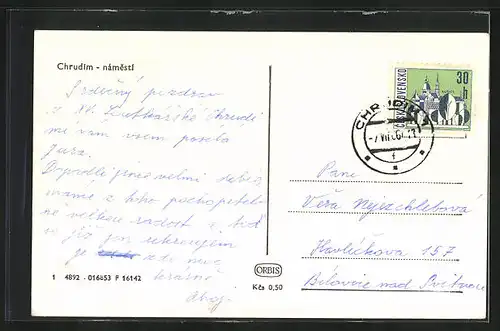 Chrudim - náměstí
Srdečný pozdrav
z XV. Loutkářské Chrudi
mi vám všem posílá
Jura.
Dopadli jsme velmi dobře,
máme z toho pochopitel
ně velkou radost a teď
už jen
je zde moc
krásně
Ahoj
1 4892 - 016853 F 16142
ORBIS
Kčs 0,50
ČESKOSLOVENSKO
30 h
CHRUDIM
Paní
Věra Nejezchlebová
Havlíčkova 157
Bělovice nad Svitavou